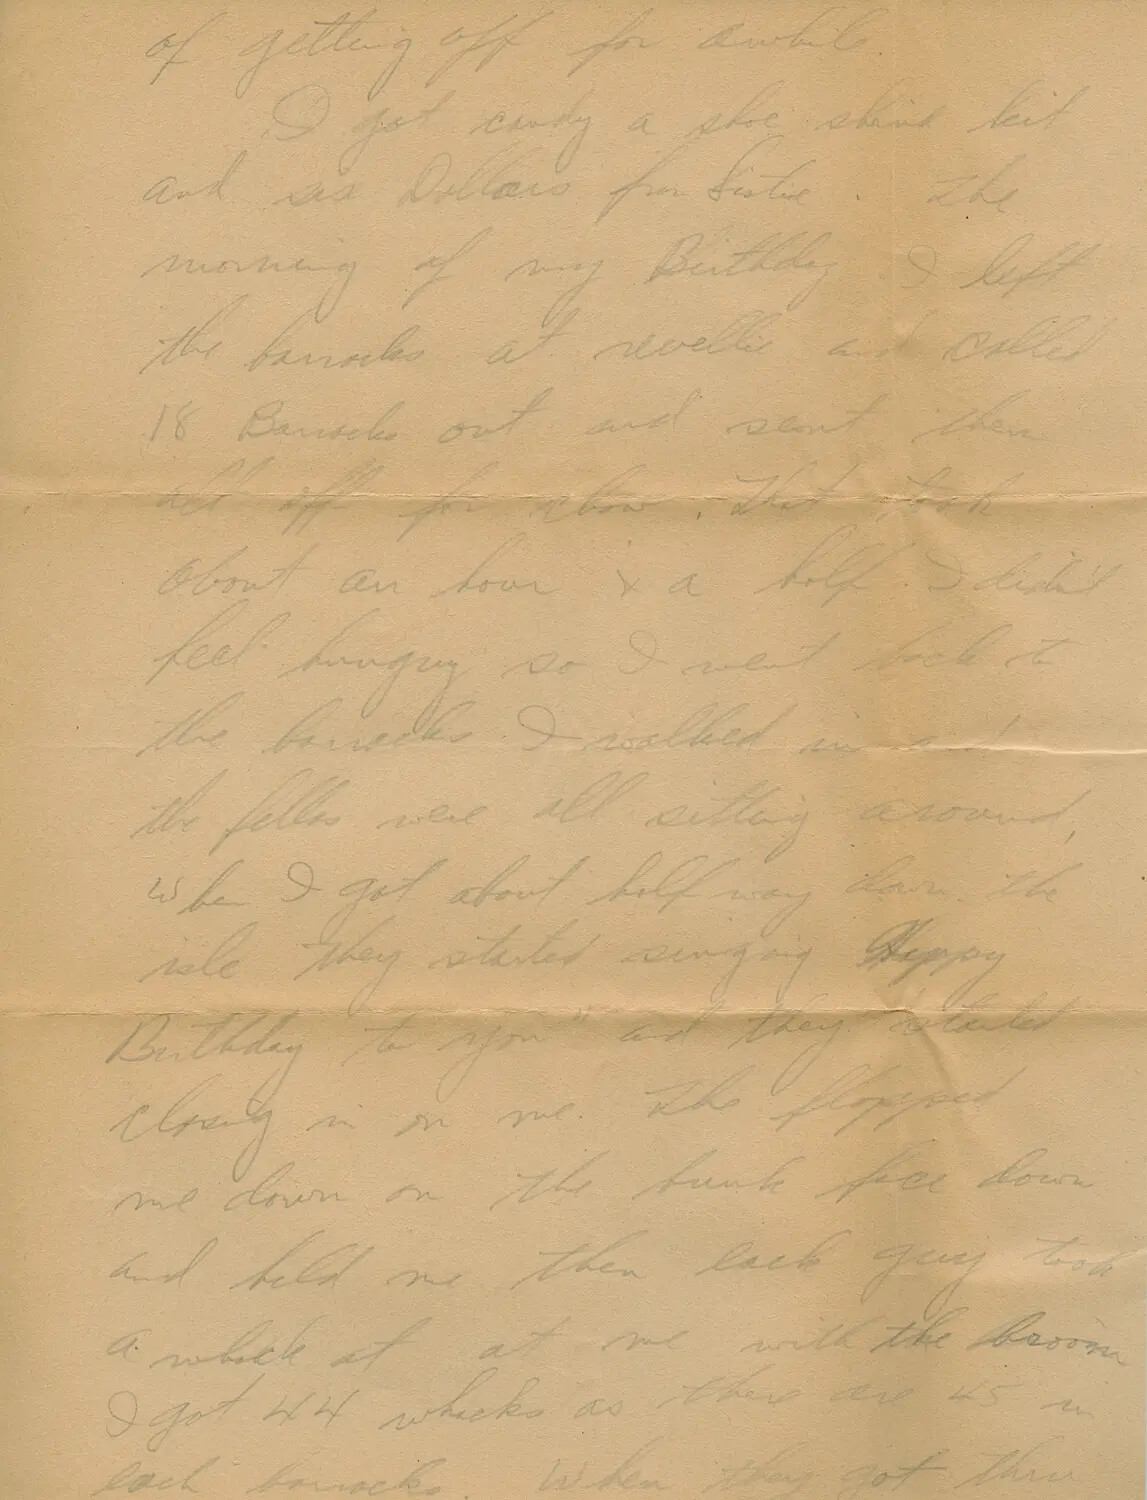 of getting off for awhile.
I got candy a shoe shine kit
and six Dollars from Sistie. The
morning of my Birthday I left
the barracks at revellie and called
18 Barracks out and sent them
all off for chow. That took
about an hour & a half. I didn't
feel hungry so I went back to
the barracks. I walked in and
the fellos were all sitting around,
when I got about half way down the
isle they started singing Happy
Birthday to you" and they started
closing in on me. The flopped
me down on the bunk face down
and held me then each guy took
a whack at at me with the broom
I got 44 whacks as there are 45 in
each barracks. When they got thru